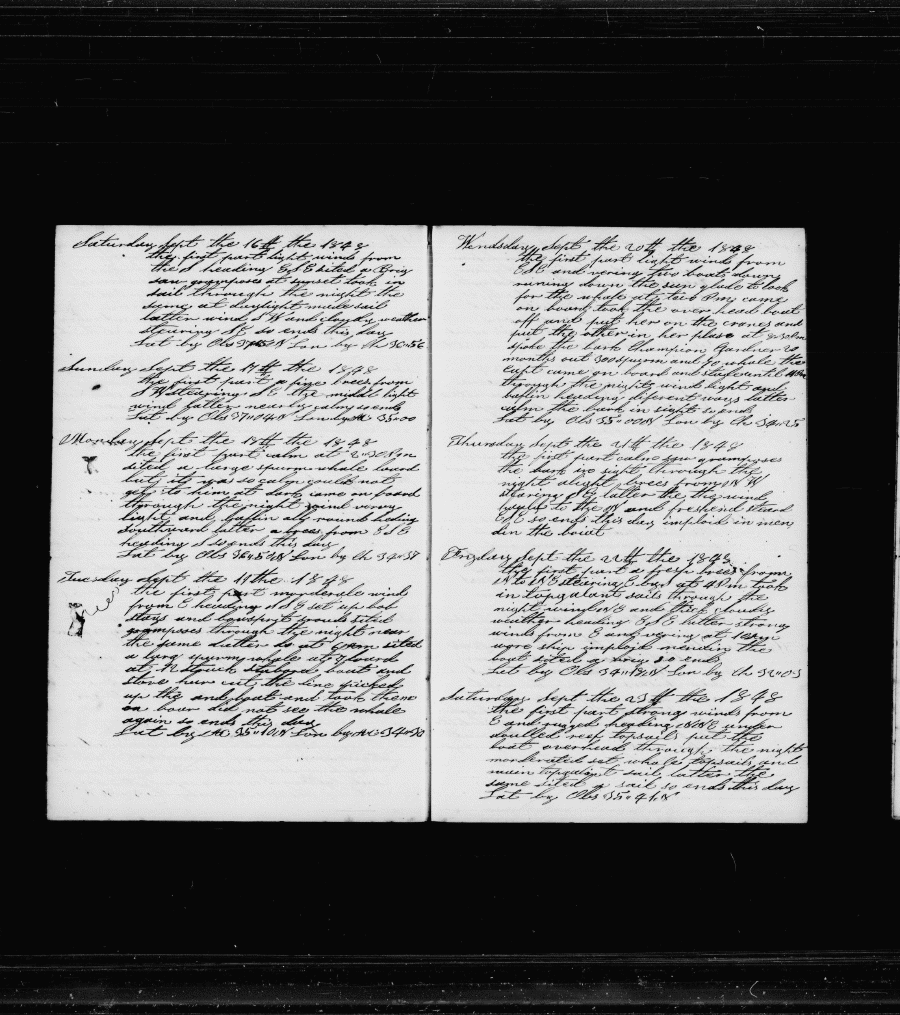 Saturday Sept the 16th the 1848
the first part light winds from
the S heading ESE sited a Brig
saw gramposes at sunset took in
sail through the night the
same at daylight made sail
latter wind SW and cloudy weather
steering SE so ends this day
Lat by Obs N Lon by Ch
Sunday Sept the 17th the 1848
the first part a fine brees from
SW steering SE the midal light
wind latter nearly calm so ends
Lat by Obs 37"04N Lon by Ch 35"00
Monday Sept the 18th the 1848
the first part calm at 2"30 Pm
sited a large spurm whale loard
but it was so calm could not
get to him at dark came on board
through the night wind verry
light and baffin all round heding
southward latter a brees from ESE
heading S so ends this day
Lat by Obs N Lon by Ch 34"58
Tuesday Sept the the 1848
the first part morderate winds
from E heading NNE set up bob
stays and bowsprit srouds sited
gramposes through the night near
the same latter do at 6 am sited
a larg spurm whale at 7 loard
at 12 struck starbord boat and
stove hur cut the line picked
up the and boat and took them
on bour did not see the whale
again so ends this day
Lat by 35"10N Lon by 34"30
Wendsday Sept the 20th the 1848
the first part light winds from
ESE and vering two boats down
runing down the sun glade to look
for the whale at two Pm came
on board took the over head boat
off and put her on the cranes and
put the other in her place at 8"30 Pm
spoke the bark Champion Gardner 20
months out 300 spurm and 90 whale the
capt came on board and staid until
through the night winds light and
baffin heading diferent ways latter
calm the bark in sight so ends
Lat by Obs 35"00N Lon by Ch 34"25
Thursday Sept the 21th the 1848
the first part calm saw gramposes
the bark in sight through the
night alight brees from NW
stearing E by latter the the wind
to the N and freshend steard
E so ends this day imploid in men
din the boat
Fryday Sept the 22th the 1848
the first part a fresh brees from
N to NE steering E by at 4 Pm took
in topgalant sails through the
night wind NE and thick cloudy
weather heading ESE latter strong
winds from E and vering at 10 am
wore ship imploid mendin the
boat sited a brig so ends
Lat by Obs 34" N Lon by Ch 32"03
Saturday Sept the 23th the 1848
the first part strong winds from
E and ruged heading NNE under
doulled reef topsails put the
boat overhead through the night
morderated set whole topsails and
main topgalant sail latter the
same sited a sail so ends this day
Lat by Obs 35"41N